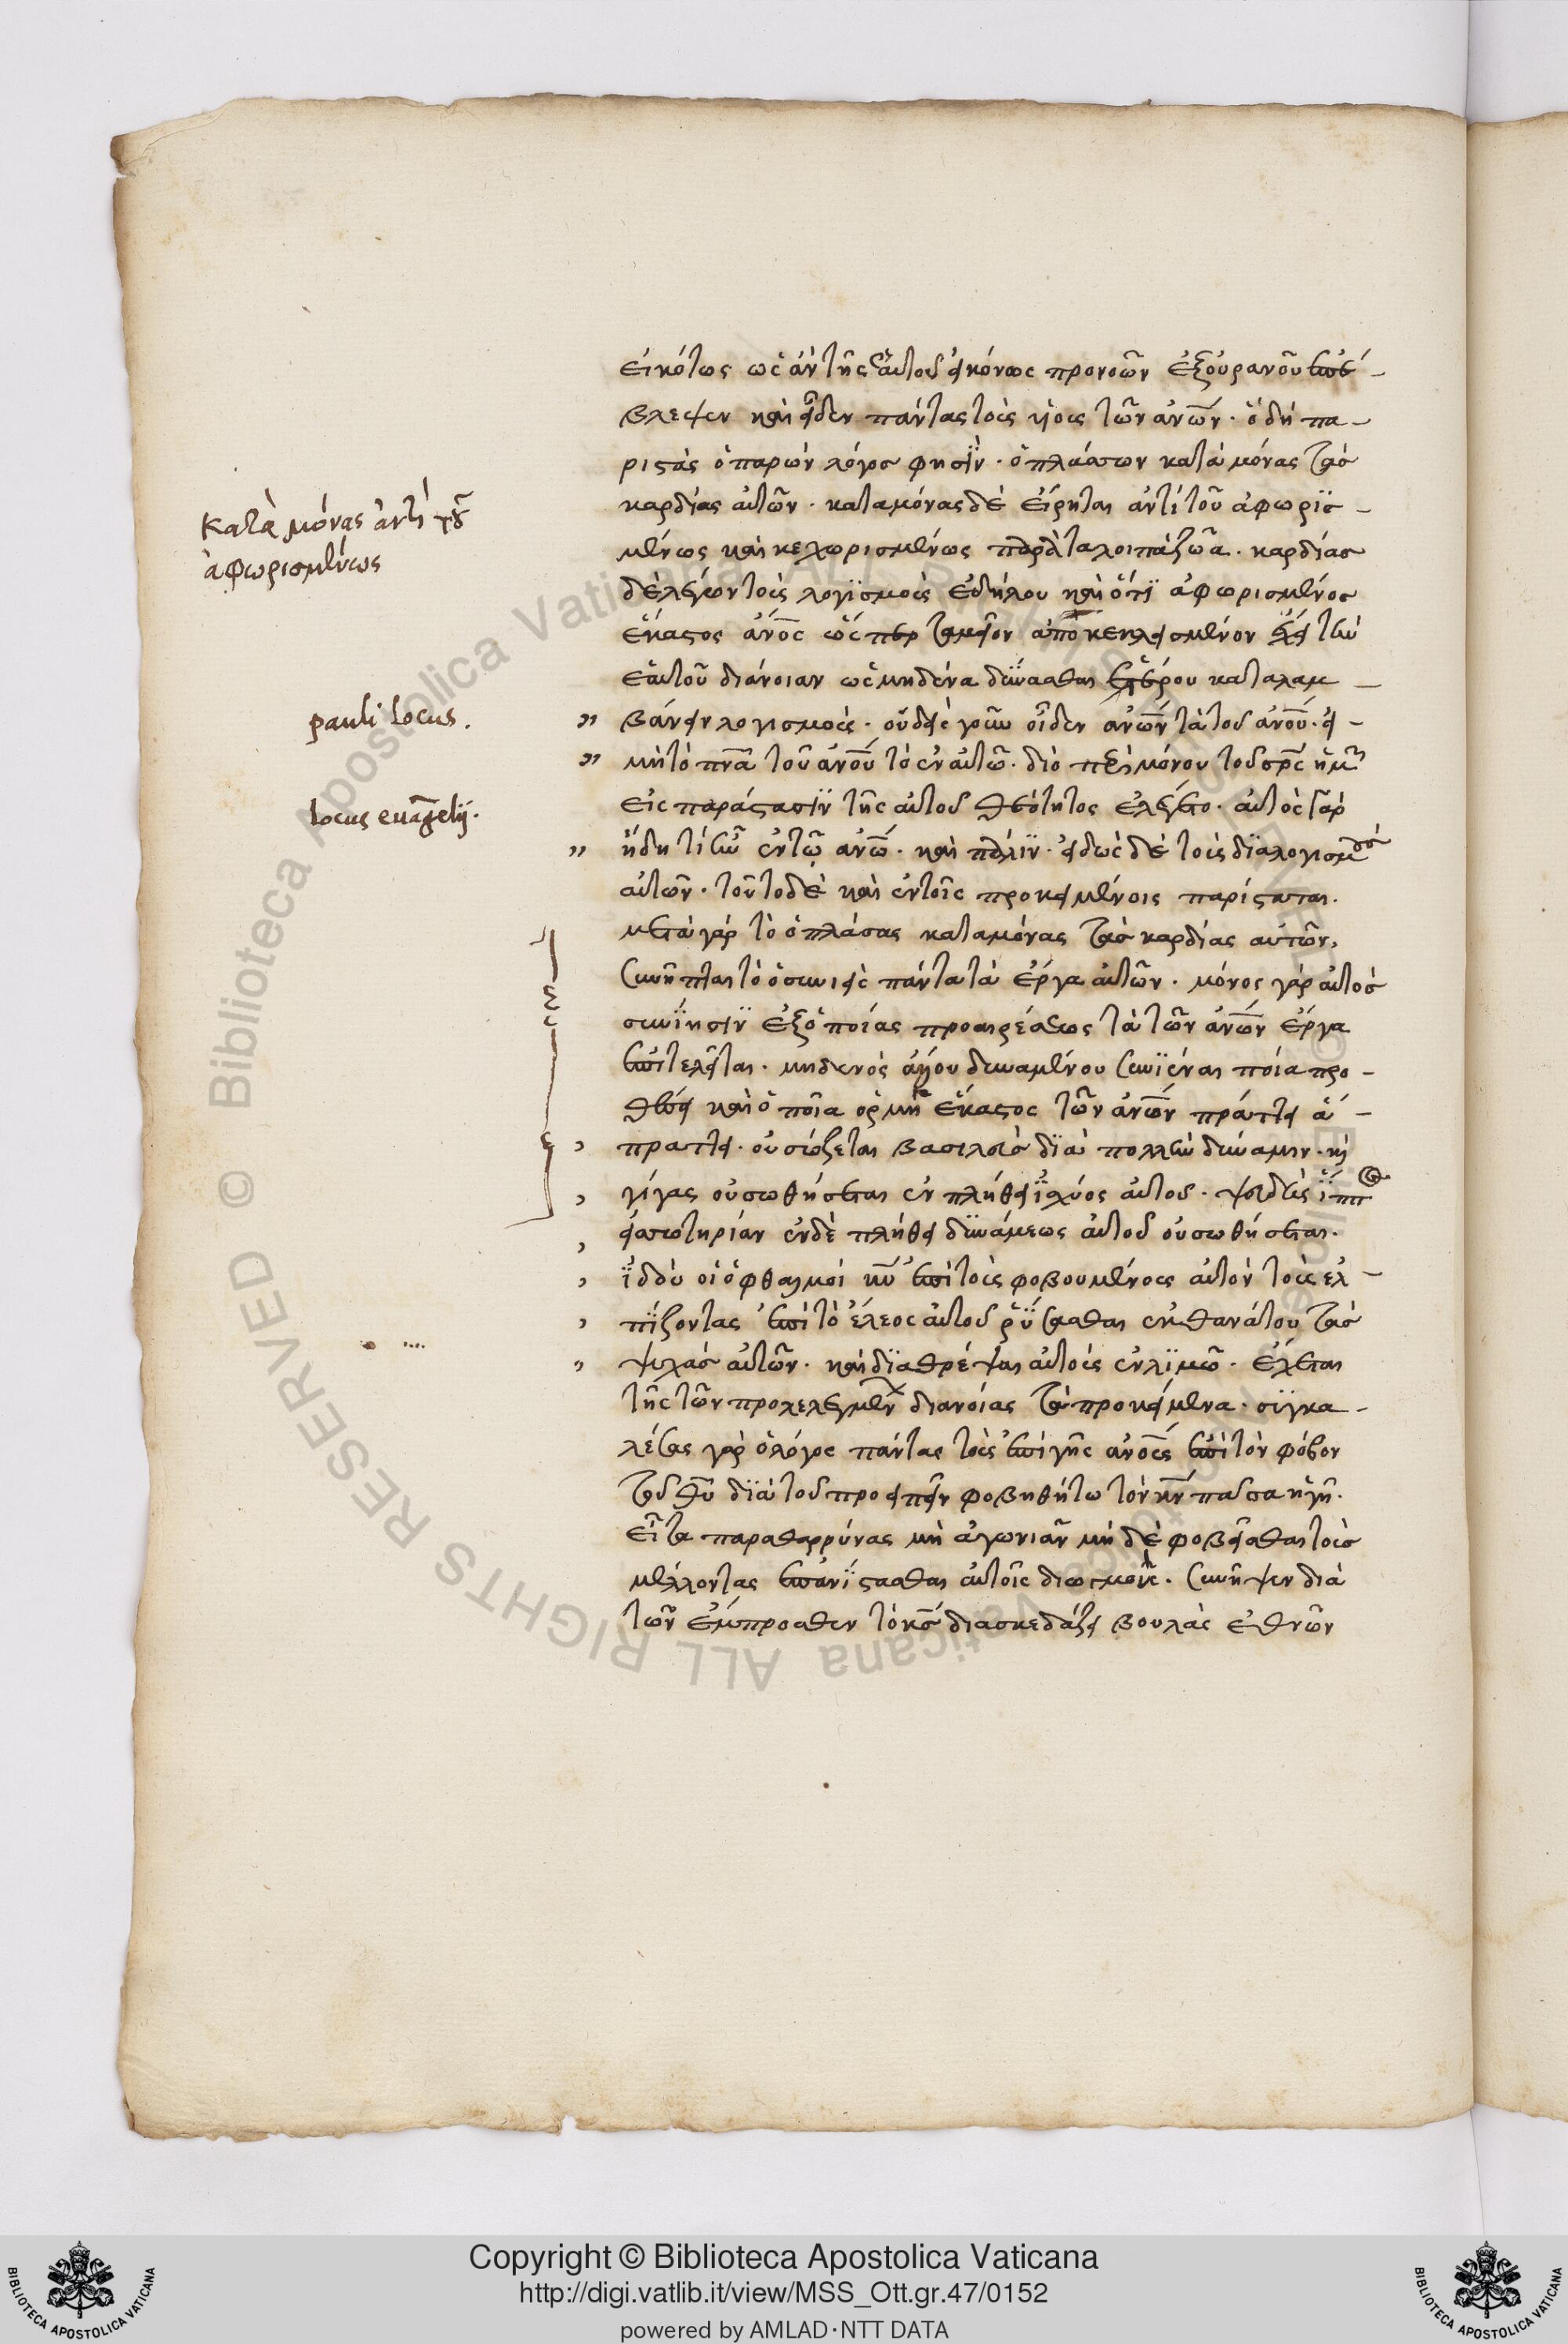 εἰκότως ὡς ἂν τῆς ἑαυτοῦ εἰκόνος προνοῶν ἐξ οὐρανοῦ ἐπέ-
βλεψεν καὶ εἶδεν πάντας τοὺς υἱοὺς τῶν ἀνων. ὃ δὴ πα-
ριστὰς ὁ παρὼν λόγος φησὶν. ὁ πλάσας κατὰ μόνας τὰς
καρδίας αὐτῶν. καταμόνας δὲ εἴρηται ἀντὶ τοῦ ἀφωρϊσ-
μένως καὶ κεχωρισμένως παρὰ τὰ λοιπὰ ζῶα. καρδίας
δὲ λέγων τοὺς λογϊσμοὺς ἐδήλου καὶ ὅτϊ ἀφωρισμένος
ἕκαστος ἀνος ὥσπερ ταμεῖον ἀποκεκλεισμένον ἔχει τὴν
ἑαυτοῦ διάνοιαν ὡς μηδένα δύνασθαι ἑτέρου καταλαμ-
βάνειν λογισμούς. οὐδεὶς γοῦν οἶδεν ἀνων τὰ τοῦ ἀνου. εἰ-
μὴ τὸ πνα τοῦ ἀνου τὸ ἐν αὐτῷ. διὸ περὶ μόνου τοῦ σρς ἡμ
εἰς παράστασϊν τῆς αὐτοῦ θεότητος ἐλέγετο. αὐτὸς γὰρ
ἤδει τί ἦν ἐν τῷ ἀνω. καὶ πάλϊν. εἰδὼς δὲ τοὺς δϊαλογισμοὺς
αὐτῶν. τοῦτο δὲ καὶ ἐν τοῖς προκειμένοις παρίσταται.
μετὰ γὰρ τὸ ὁ πλάσας καταμόνας τὰς καρδίας αὐτῶν,
συνῆπται τὸ ὁ συνιεὶς πάντα τὰ ἔργα αὐτῶν. μόνος γὰρ αὐτὸς
συνΐησϊν ἐξ ὁποίας προαιρέσεως τὰ τῶν ἀνων ἔργα
ἐπιτελεῖται. μηδενὸς ἄλλου δυναμένου συνϊέναι ποία προ-
θέσει καὶ ὁποία ὁρμῇ ἕκαστος τῶν ἀνων πράττει ἃ-
πράττει. οὐ σώζεται βασιλεὺς δϊὰ πολλὴν δύναμιν. καὶ
γίγας οὐ σωθήσεται ἐν πλήθει ἰσχύος αὐτοῦ. ψευδὴς ἵππος
εἰς σωτηρίαν ἐν δὲ πλήθει δυνάμεως αὐτοῦ οὐ σωθήσεται.
ἰδοὺ οἱ ὀφθαλμοὶ κυ ἐπὶ τοὺς φοβουμένους αὐτὸν τοὺς ἐλ-
πΐζοντας ἐπὶ τὸ ἔλεος αὐτοῦ ῥύσασθαι ἐκ θανάτου τὰς
ψυχὰς αὐτῶν. καὶ δϊαθρέψαι αὐτοὺς ἐν λϊμῷ. ἔχεται
τῆς τῶν προλελεγμένων διανοίας τὰ προκείμενα. συγκα-
λέσας γὰρ ὁ λόγος πάντας τοὺς ἐπὶ γῆς ἀνους ἐπὶ τὸν φόβον
τοῦ θυ δϊὰ τοῦ προειπεῖν φοβηθήτω τὸν κν πᾶσα ἡ γῆ.
εἶτα παραθαρρύνας μὴ ἀγωνιᾶν μὴ δὲ φοβεῖσθαι τοὺς
μέλλοντας ἐπανΐστασθαι αὐτοῖς διωγμούς. συνῆψεν διὰ
τῶν ἔμπροσθεν τὸ κς διασκεδάζει βουλὰς ἐθνῶν
κατὰ μόνας ἀντὶ τοῦ
ἀφωρισμένως
pauli locus.
locus euāgelij.
Copyright © Biblioteca Apostolica Vaticana
http://digi.vatlib.it/view/MSS_Ott.gr.47/0152
powered by AMLAD·NTT DATA
BIBLIOTECA APOSTOLICA VATICANA
BIBLIOTECA APOSTOLICA VATICANA